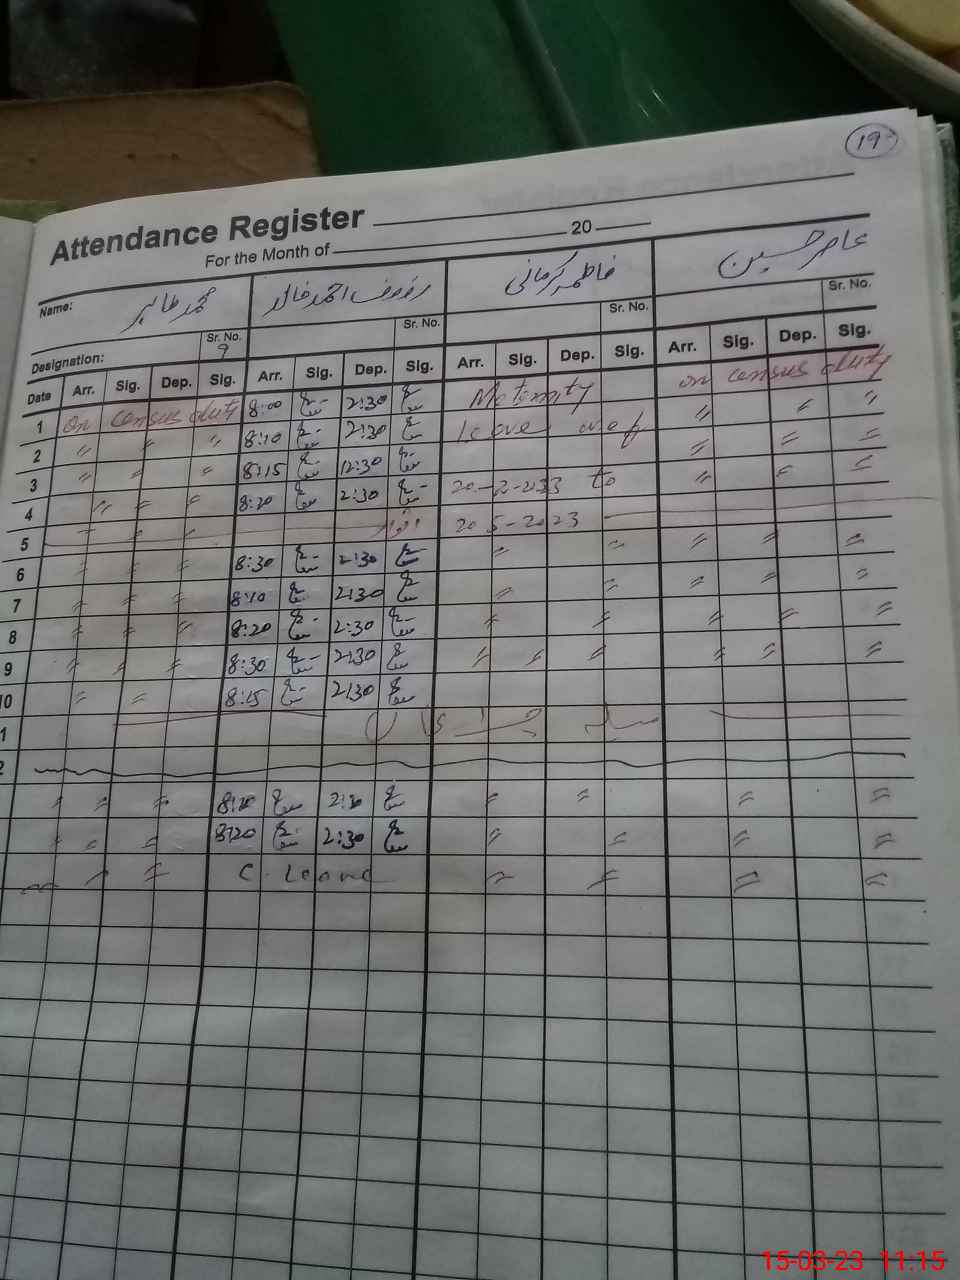 19
Attendance Register
For the Month of 20
Name: محمد طاہر احمد خالد فاطمہ کرمانی عامر حسین
Sr. No. Sr. No. Sr. No. Sr. No.
Designation: 9
Date Arr. Sig. Dep. Sig. Arr. Sig. Dep. Sig. Arr. Sig. Dep. Sig. Arr. Sig. Dep. Sig.
1 on census duty 8:00 2:30 Maternity on census duty
2 " " " 8:10 2:30 leave w e f " " "
3 " " " 8:15 12:30 " " "
4 " " " 8:20 2:30 20-2-233 to " " "
5 " " " اتوار 20 5-2023
6 " " " 8:30 2:30 " " " " "
7 " " " 8:10 2:30 " " " " "
8 " " " 8:20 2:30 " " " " "
9 " " " 8:30 2:30 " " " " " "
10 " " 8:15 2:30
1
2
" " " 8:20 2:30 " " " "
" " " 8:20 2:30 " " " "
" " " C. Leave " " " "
15-03-23 11:15